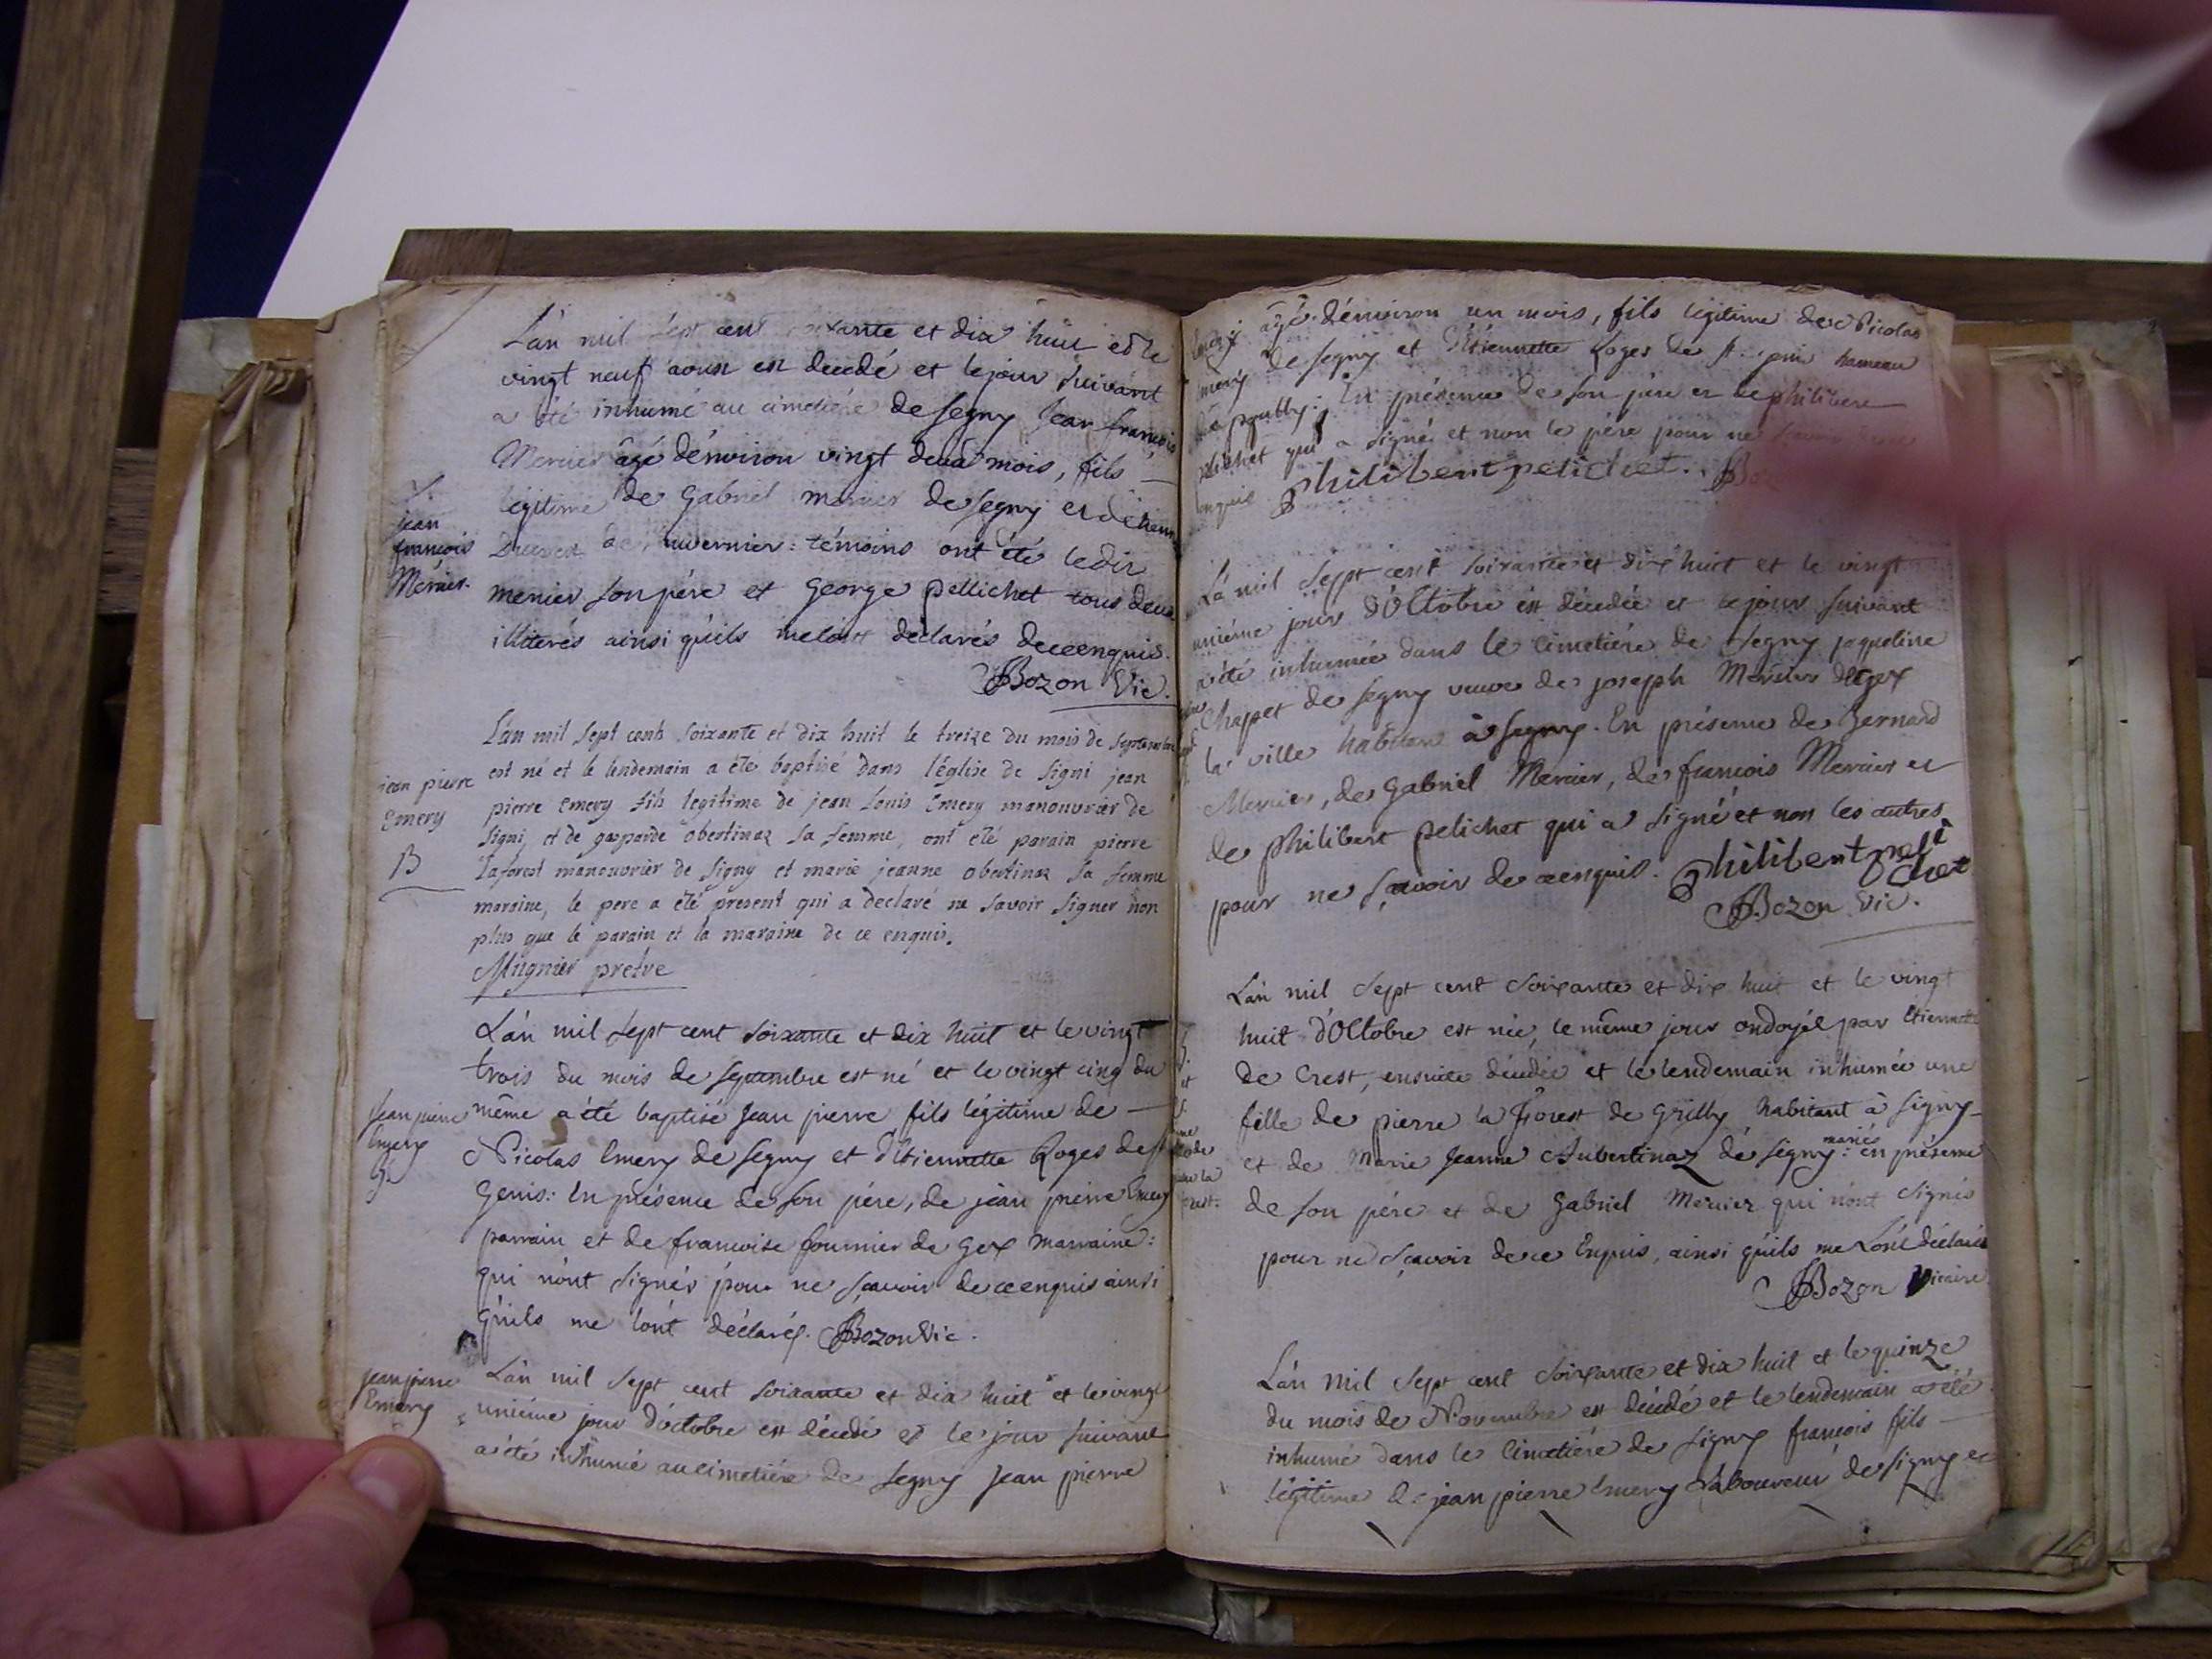 L'an mil sept cent soixante et dix huit et le
vingt neuf aoust est decedé et le jour suivant
a été inhumé au cimetiére de segny Jean françois
Mercier âgé d'énviron vingt deux mois, fils
légitime de Gabriel mercier de segny et
de : témoins ont été ledit
mercier son pére et George pellichet tous deux
illiterés ainsi qu'ils me l'ont déclarés de ce enquis.
Bozon Vic.
jean
françois
Mercier.
L'an mil sept cents soixante et dix huit le treize du mois de septembre
est né et le lendemain a été baptisé dans l'église de signi jean
pierre emery fils legitime de jean Louis Emery manouvrier de
signi, et de gasparde obertinaz sa femme, ont été parain pierre
laforest manouvrier de signy et marie jeanne obertinaz sa femme
maraine, le pere a été present qui a declaré ne savoir signer non
plus que le parain et la maraine de ce enquis.
Mugnier pretre
jean pierre
Emery
B
L'an mil sept cent soixante et dix huit et le vingt
trois du mois de septembre est né et le vingt cinq du
même a été baptisé Jean pierre fils légitime de
Nicolas Emery de segny et d'Etiennette Roges de st
Genis: En présence de son pére, de jean pierre Emery
parrain et de francoise fournier de Gex marraine:
qui n'ont signés pour ne sçavoir de ce enquis ainsi
qu'ils me l'ont déclaréз. Bozon Vic.
Jean pierre
Emery
Jean pierre
Emery
L'an mil sept cent soixante et dix huit et le vingt
uniéme jour d'octobre est décedé et le jour suivant
a été inhumé au cimetiére de segny Jean pierre
âgé d'énviron un mois, fils légitime de Nicolas
emery de segny et d'Etiennette Roges de st. hameau
de poully: En présence de son pére et de philibert
pelichet qui a signé et non le pére pour ne
enquis philibert pelichet.
L'a mil sept cent soixante et dix huit et le vingt
uniéme jour d'Octobre est décedée et le jour suivant
a été inhumée dans le cimetiére de segny jaqueline
Chapet de segny veuve de joseph Mercier de gex
la ville habitant à segny. En présence de Bernard
Mercier, de Gabriel Mercier, de francois Mercier et
de philibert pelichet qui a signé et non les autres
pour ne sçavoir de ce enquis. philibert peli
chet
Bozon Vic.
L'an mil sept cent soixante et dix huit et le vingt
huit d'Octobre est née, le même jour ondoyée par Etiennette
de Crest, ensuite décedée et le lendemain inhumée une
fille de pierre la Forest de Grilly habitant à signy
et de Marie Jeanne Aubertinaz de segny mariés: en présence
de son pére et de Gabriel Mercier qui n'ont signés
pour ne sçavoir de ce Enquis, ainsi qu'ils me l'ont déclarés
Bozon Vicaire
L'an Mil sept cent soixante et dix huit et le quinze
du mois de Novembre est décedé et le lendemain a été
inhumé dans le cimetiére de signy françois fils
légitime de jean pierre Emery Laboureur de signy et